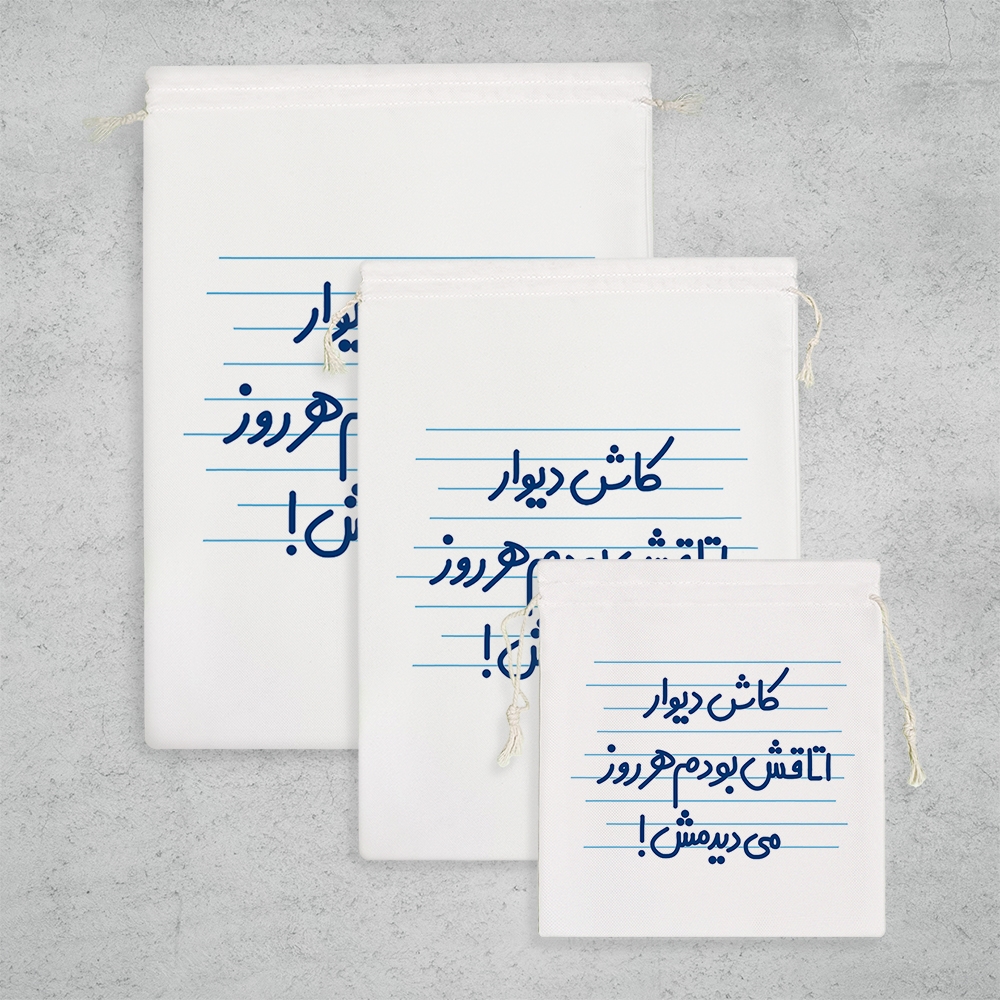 هر روز
!
کاش دیوار
اتاقش بودم هر روز
!
کاش دیوار
اتاقش بودم هر روز
می دیدمش !